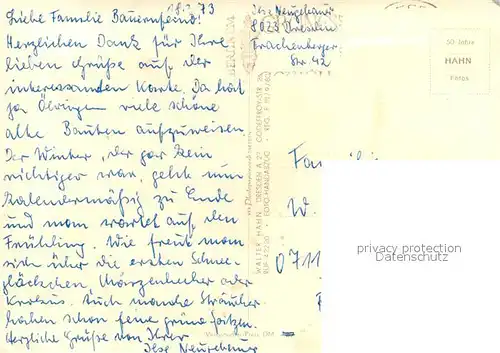 18.2.73
Liebe Familie Bauernfeind!
Herzlichen Dank für Ihre
lieben Grüße auf der
interessanten Karte. Da hat
ja Öhringen viele schöne
alte Bauten aufzuweisen
Der Winter, der gar kein
richtiger war, geht nun
kalendermäßig zu Ende
und man wartet auf den
Frühling. Wie freut man
sich über die ersten Schnee-
glöckchen, Märzenbecher oder
Krokus. Auch manche Sträucher
haben schon feine grüne Spitzen.
Herzliche Grüße von Ihrer
Ilse
Ilse
8023 Dresden
Trachenberger
Str. 42
BERLIN
WALTER HAHN, DRESDEN A 27
FOTO-HANDABZUG
50 Jahre
HAHN
Fotos
Fam
W.
0711
privacy protection
Datenschutz